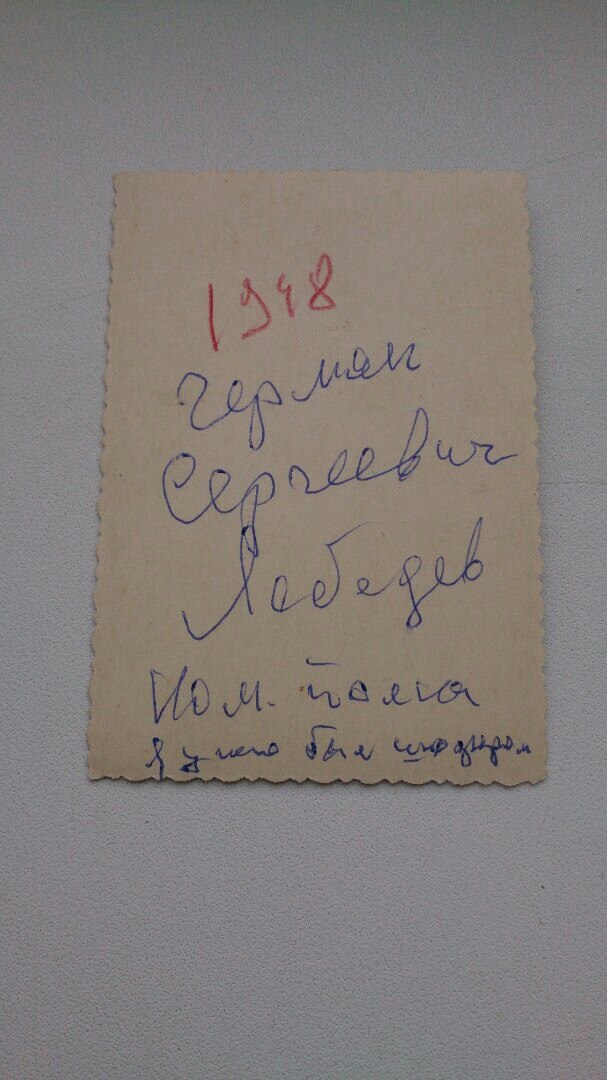 1948
Герман
Сергеевич
Лебедев
Ком. полка
Я у него был шофером